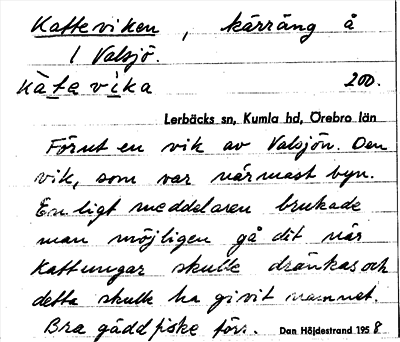 Katteviken, kärräng å
1 Valsjö.
kàtevika 200.
Lerbäcks sn, Kumla hd, Örebro län
Förut en vik av Valsjön. Den
vik, som var närmast byn.
Enligt meddelaren brukade
man möjligen gå dit när
kattungar skulle dränkas och
detta skulle ha givit namnet.
Bra gäddfiske förr. Dan Höjdestrand 1958